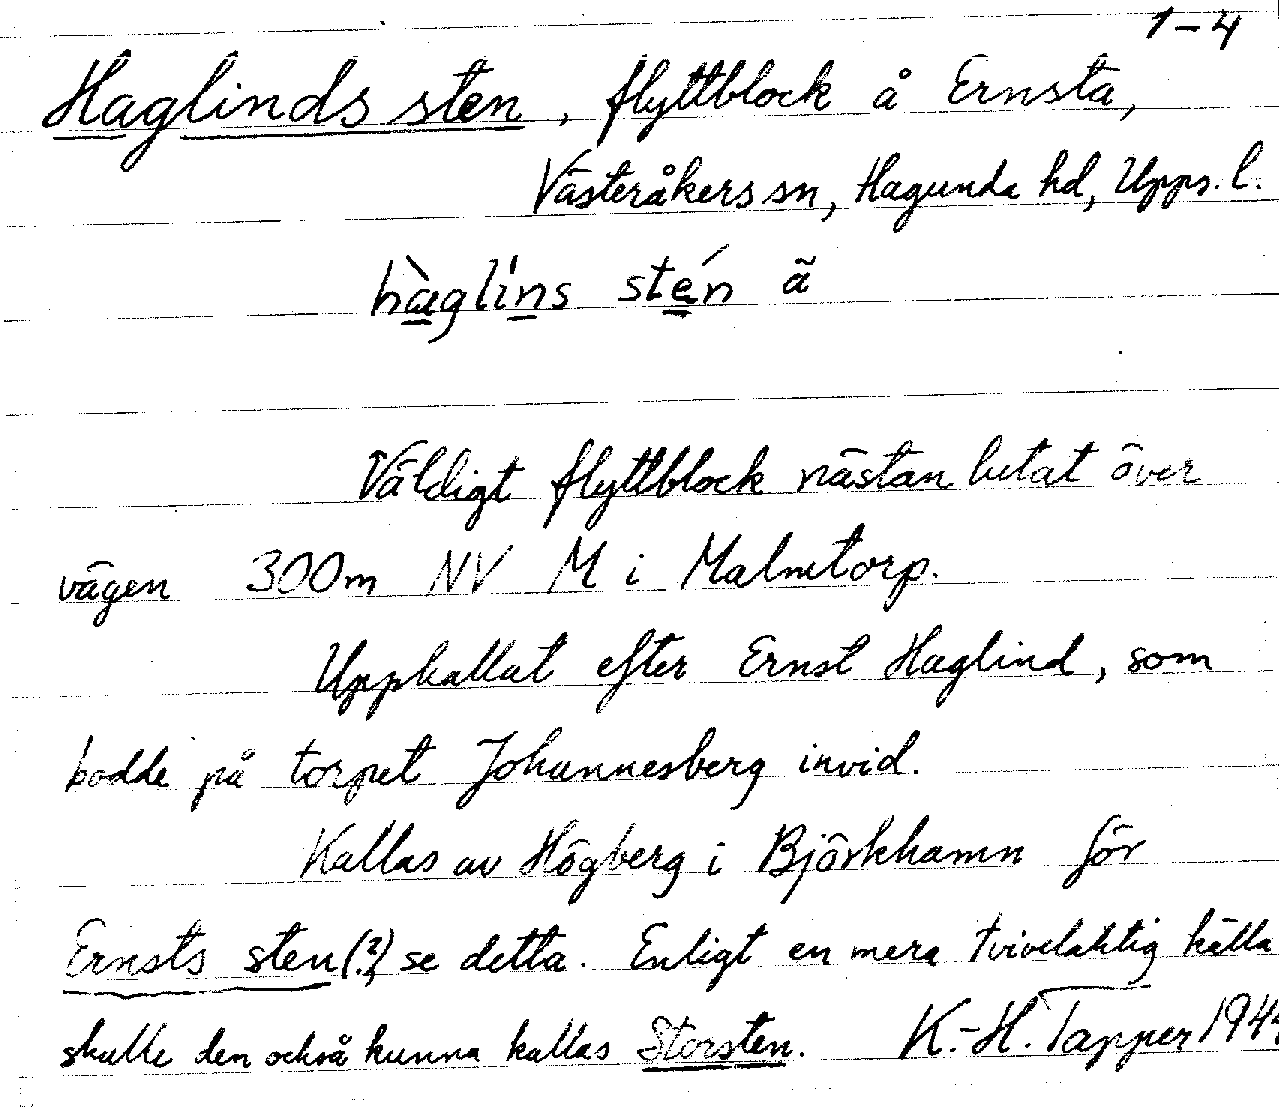 1-4
Haglinds sten, flyttblock å Ernsta,
Västeråkers sn, Hagunda hd, Upps. l.
hàgli'ns stén ã
Väldigt flyttblock nästan lutat över
vägen 300m NV M i Malmtorp.
Uppkallat efter Ernst Haglind, som
bodde på torpet Johannesberg invid.
Kallas av Högberg i Björkhamn för
Ernsts sten(?) se detta. Enligt en mera tvivelaktig källa
skulle den också kunna kallas Storsten. K.-H. Tapper